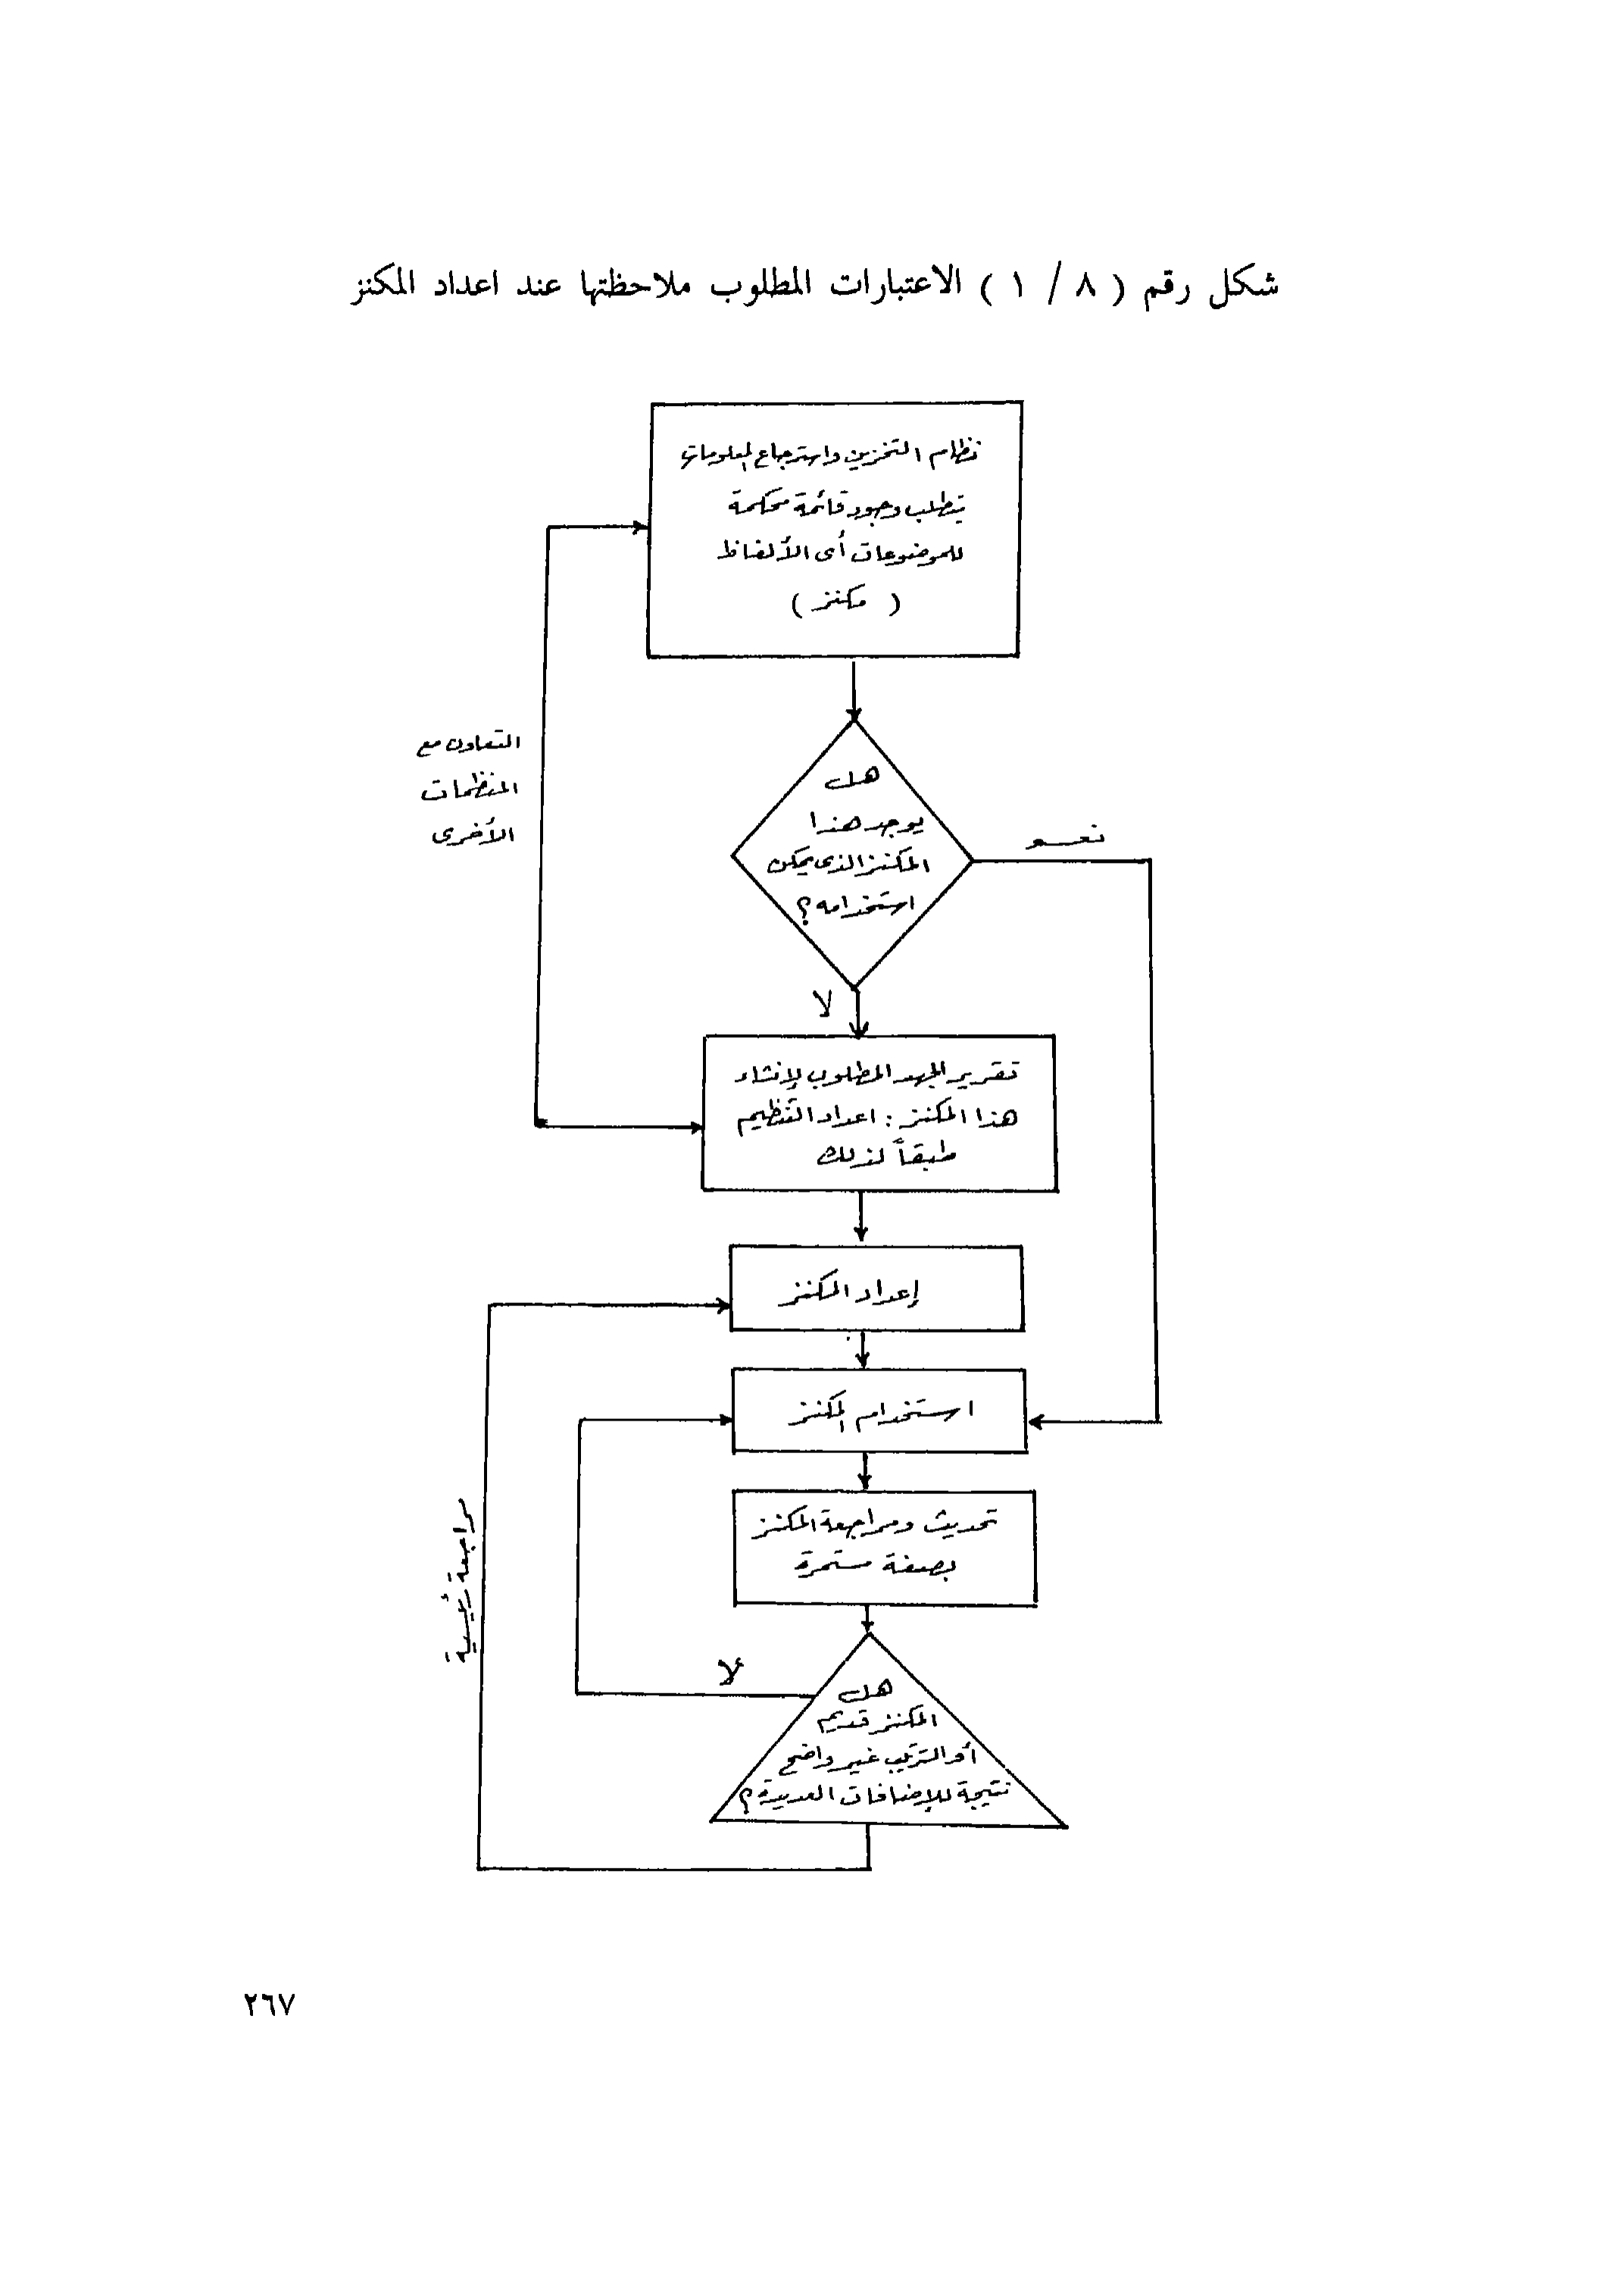 شكل رقم ( ٨ / ١ ) الاعتبارات المطلوب ملاحظتها عند اعداد المكنز
نظام التخزين واسترجاع المعلومات
يتطلب وجود قائمة محكمة
للموضوعات أى الألفاظ
( مكنز )
التعاون مع
المنظمات
الأخرى
هل
يوجد هذا
المكنز الذى يمكن
استخدامه ؟
نعم
لا
تقرير الجهد المطلوب لإنشاء
هذا المكنز : اعداد التنظيم
طبقاً لذلك
إعداد المكنز
استخدام المكنز
تحديث ومراجعة المكنز
بصفة مستمرة
مراجعة رئيسية
لا
هل
المكنز قديم
أو الترتيب غير واضح
نتيجة للإضافات العديدة ؟
٢٦٧